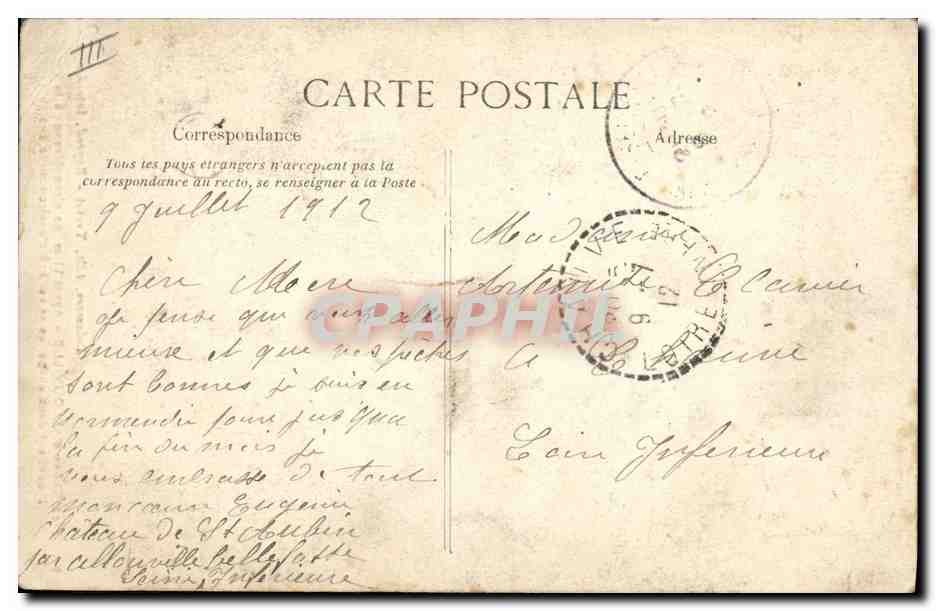 III
CARTE POSTALE
Correspondance
Adresse
Tous les pays étrangers n'acceptent pas la
correspondance au recto, se renseigner à la Poste
9 Juillet 1912
Chère Mere
je pense que vous allez
mieux et que vos
sont bonnes je suis en
normendi pour jusqua
la fin du mois je
vous embrasse de tout
mon cœur Eugénie
Chateau de St Aubin
par allouville bellefosse
Seine Inferieure
Madame
a
Loire Inferieure
9 -7
12
CRAPHIL